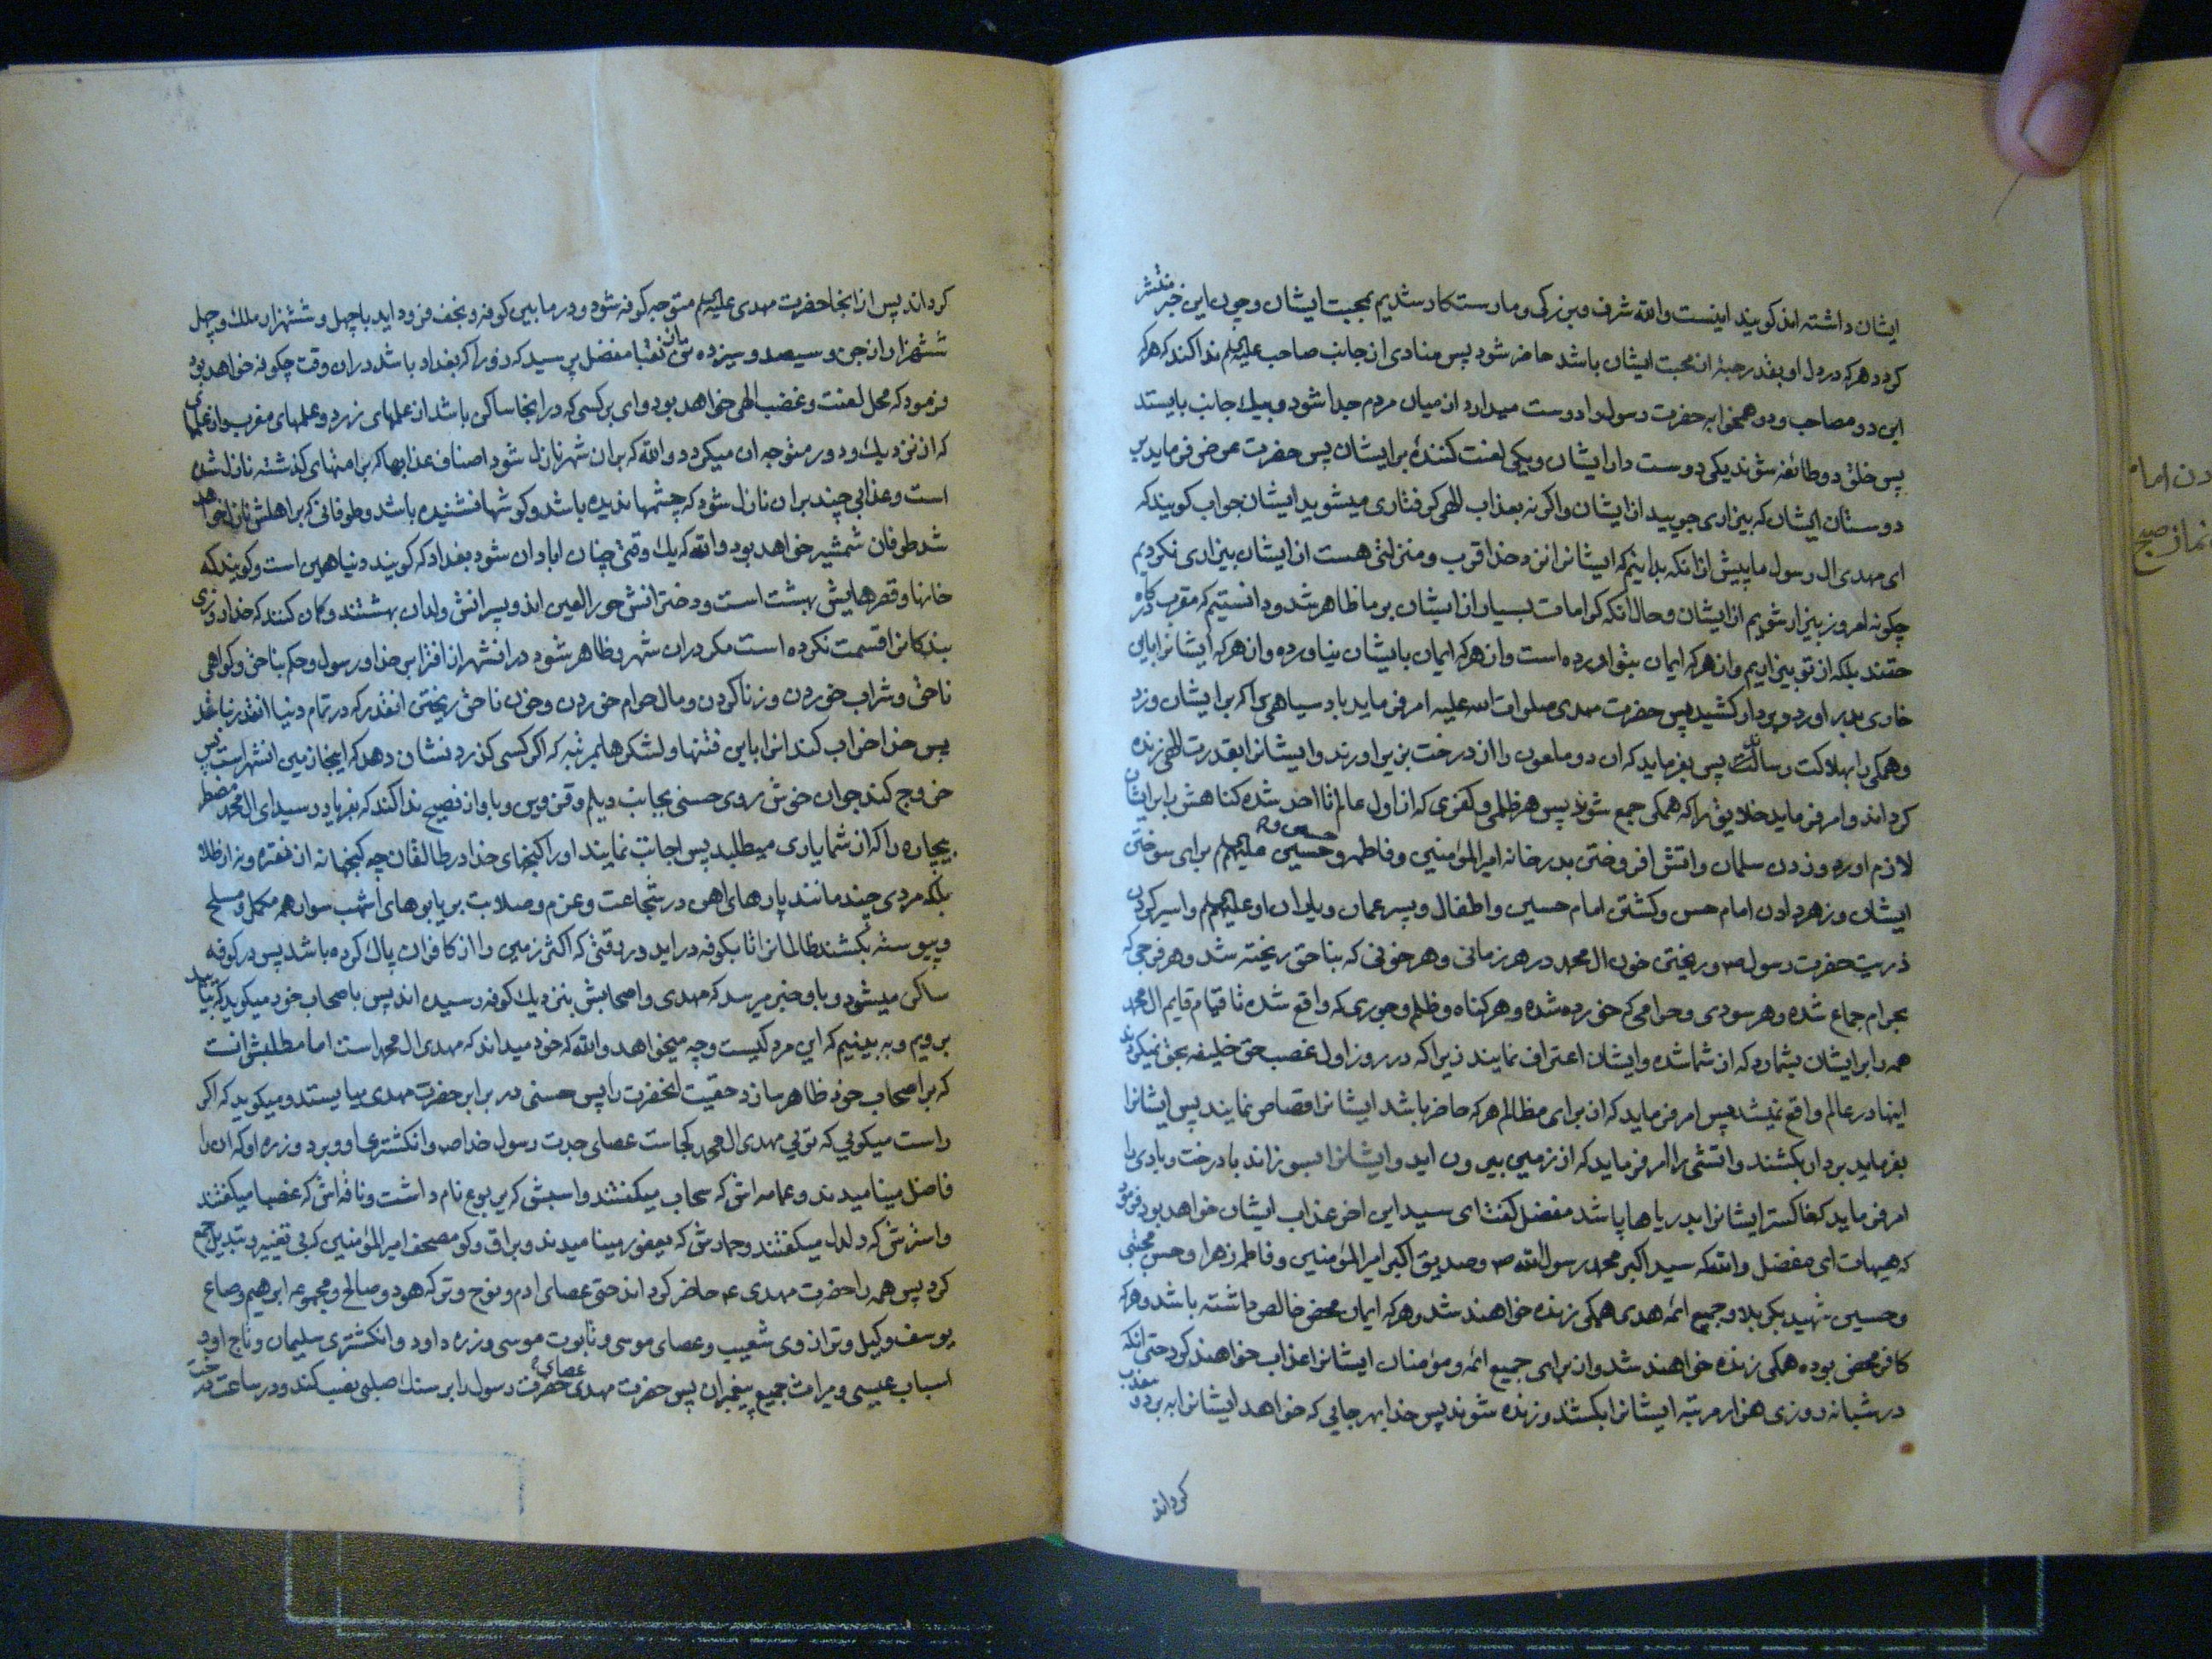 ایشان داشته اند کویند اینست والله شرف و بزرکی و ما رستکار شدیم بمحبت ایشان و چون این خبر منتشر
کردد هرکه در دل او بقدر حبهٔ از محبت ایشان باشد حاضر شود پس منادی از جانب صاحب علیه‌السلم ندا کند که هرکه
این دو مصاحب و دو همخوابه حضرت رسول را دوست میدارد از میان مردم جدا شود و بیک جانب بایستد
پس خلق دو طائفه شوند یکی دوست دار ایشان و یکی لعنت کنندهٔ بر ایشان پس حضرت عرض فرماید بر
دوستان ایشان که بیزاری جویید از ایشان و اکر نه بعذاب الهی کرفتار میشوید ایشان جواب کویند که
ای مهدی ال رسول ما پیش از انکه بدانیم که ایشانرا نزد خدا قرب و منزلتی هست از ایشان بیزاری نکردیم
چکونه امروز بیزار شویم از ایشان و حال انکه کرامات بسیار از ایشان بر ما ظاهر شد و دانستیم که مقرب درکاه
حقند بلکه از تو بیزاریم و از هرکه ایمان بتو اورده است و از هرکه ایمان بایشان نیاورده و از هرکه ایشانرا باین
خاری بدر اورد و بردار کشید پس حضرت مهدی صلوات الله علیه امر فرماید باد سیاهی را که بر ایشان وزد
وهمکی را بهلاکت رساند پس بفرماید که ان دو ملعون را از درخت بزیر اورند و ایشانرا بقدرت الهی زنده
کرداند و امر فرماید خلایق را که همکی جمع شوند پس هر ظلمی و کفری که از اول عالم تا اخر شده کناهش بر ایشان
لازم اورد و زدن سلمان و اتش افروختن بدر خانه امیرالمؤمنین و فاطمه و حسن و حسین علیهم‌السلم برای سوختن
ایشان و زهر دادن امام حسن و کشتن امام حسین و اطفال و پسر عمان و یاران او علیهم‌السلم و اسیر کردن
ذریت حضرت رسول ص و ریختن خون ال محمد در هر زمانی و هر خونی که بناحق ریخته شد و هر فرجی که
بحرام جماع شده و هر سودی و حرامی که خورده شده و هر کناه و ظلم و جوری که واقع شده تا قیام قایم ال محمد
همه را بر ایشان بشمارد که از شما شده و ایشان اعتراف نمایند زیرا که در روز اول غصب حق خلیفه بحق نمیکردند
اینها در عالم واقع نمیشد پس امر فرماید که از برای مظالم هرکه حاضر باشد ایشانرا قصاص نمایند پس ایشانرا
بفرماید بردار بکشند و اتشی را امر فرماید که از زمین بیرون اید و ایشانرا بسوزاند با درخت و بادی را
امر فرماید که خاکستر ایشانرا بدریاها پاشد مفضل کفت ای سید این اخر عذاب ایشان خواهد بود فرمود
که هیهات ای مفضل والله که سید اکبر محمد رسول الله ص و صدیق اکبر امیرالمؤمنین و فاطمه زهرا و حسن مجتبی
و حسین شهید بکربلا و جمیع ائمه هدی همکی زنده خواهند شد و هرکه ایمان محض خالص داشته باشد و هرکه
کافر محض بوده همکی زنده خواهند شد و از برای جمیع ائمه و مؤمنان ایشانرا عذاب خواهند کرد حتی انکه
در شبانه روزی هزار مرتبه ایشانرا بکشند و زنده شوند پس خدا بهر جایی که خواهد ایشانرا ببرد و معذب
کرداند
کرداند پس از انجا حضرت مهدی علیه‌السلم متوجه کوفه شود و در ما بین کوفه و نجف فرود اید با چهل و ششهزار ملک و چهل
ششهزار از جن و سیصد و سیزده تن از نقبا مفضل پرسید که زورا که بغداد باشد در ان وقت چکونه خواهد بود
فرمود که محل لعنت و غضب الهی خواهد بود وای بر کسی که در انجا ساکن باشد از علمهای زرد و علمهای مغرب و از علمهای
که از نزدیک و دور متوجه ان میکردد والله که بران شهر نازل شود اصناف عذابها که بر امتهای کذشته نازل شده
است و عذابی چند بران نازل شود که چشمها ندیده باشد و کوشها نشنیده باشد و طوفانی که بر اهلش نازل خواهد
شد طوفان شمشیر خواهد بود والله که یک وقتی چنان ابادان شود بغداد که کویند دنیا همین است و کویند که
خانها و قصرهایش بهشت است و دخترانش حورالعین اند و پسرانش ولدان بهشتند و کمان کنند که خدا روزی
بندکانرا قسمت نکرده است مکر در ان شهر و ظاهر شود در انشهر از افترا بر خدا و رسول و حکم بناحق و کواهی
ناحق و شراب خوردن و زنا کردن و مال حرام خوردن و خون ناحق ریختن انقدر که در تمام دنیا انقدر نباشد
پس خدا خراب کند انرا باین فتنها و لشکرها بمرتبهٔ که اکر کسی کذرد نشان دهد که اینجا زمین انشهر است پس
خروج کند جوان خوش روی حسنی بجانب دیلم و قزوین و باواز فصیح ندا کند که بفریاد رسید ای ال محمد مضطر
بیچاره را که از شما یاری میطلبد پس اجابت نمایند او را کنجهای خدا در طالقان چه کنجها نه از نقره و نه از طلا
بلکه مردی چند مانند پارهای اهن در شجاعت و عزم و صلابت بر یابوهای اشهب سوار همه مکمل و مسلح
و پیوسته بکشند ظالمانرا تا بکوفه دراید در وقتی که اکثر زمین را از کافران پاک کرده باشد پس در کوفه
ساکن میشود و باو خبر میرسد که مهدی و اصحابش بنزدیک کوفه رسیده اند پس باصحاب خود میکوید که بیایید
برویم و به بینیم که این مرد کیست و چه میخواهد والله که خود میداند که مهدی ال محمد است اما مطلبش انست
که بر اصحاب خود ظاهر سازد حقیت انحضرت را پس حسنی در برابر حضرت مهدی میایستد و میکوید که اکر
راست میکویی که تویی مهدی ال محمد کجاست عصای جدت رسول خدا ص و انکشتر او و برد و زره او که انرا
فاضل مینامیدند و عمامه اش که سحاب میکفتند و اسبش که یربوع نام داشت و ناقه اش که غضبا میکفتند
و استرش که دلدل میکفتند و حمارش که یعفور مینامیدند و براق و کو مصحف امیرالمؤمنین که بی تغییر و تبدیل جمع
کرد پس همه را حضرت مهدی ع حاضر کرداند حتی عصای ادم و نوح و ترکه هود و صالح و مجموعه ابرهیم و صاع
یوسف و کیل و ترازوی شعیب و عصای موسی و تابوت موسی و زره داود و انکشتری سلیمان و تاج او و
اسباب عیسی و میراث جمیع پیغمبران پس حضرت مهدی عصای حضرت رسول را بر سنک صلبی نصب کند و در ساعت درخت
دن امام
نماز صبح